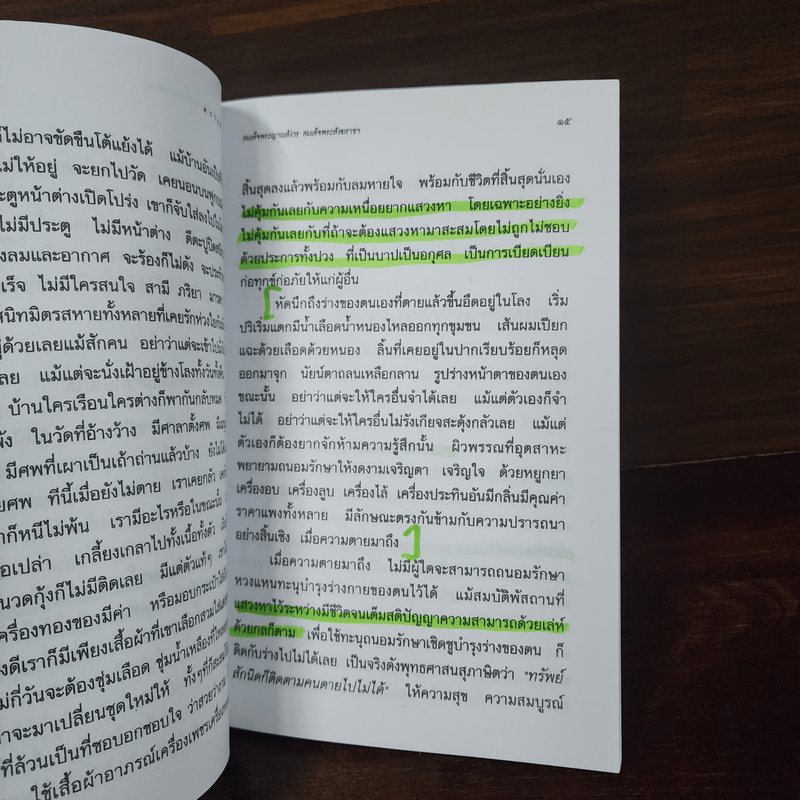 ก็ไม่อาจขัดขืนโต้แย้งได้ แม้บ้านอันเป็นที่
ไม่ให้อยู่ จะยกไปวัด เคยนอนบนฟูก
ประตูหน้าต่างเปิดโปร่ง เขาก็จับใส่ลงไปใน
ไม่มีประตู ไม่มีหน้าต่าง ตีตะปูปิดสนิท
องลมและอากาศ จะร้องก็ไม่ดัง จะประท้วง
เร็จ ไม่มีใครสนใจ สามี ภริยา มารดา
สนิทมิตรสหายทั้งหลายที่เคยรักห่วงใยกัน
ด้วยเลยแม้สักคน อย่าว่าแต่จะเข้าไปนั่ง
ลย แม้แต่จะนั่งเฝ้าอยู่ข้างโลงทั้งวันทั้งคืน
บ้านใครเรือนใครต่างก็พากันกลับหมด
ัง ในวัดที่อ้างว้าง มีศาลาตั้งศพ
มีศพที่เผาเป็นเถ้าถ่านแล้วบ้าง ยังไม่ได้
ยศพ ทีนี้เมื่อยังไม่ตาย เราเคยกลัว
าก็หนีไม่พ้น เรามีอะไรหรือในขณะนั้น
อเปล่า เกลี้ยงเกลาไปทั้งเนื้อทั้งตัว
นวดกุ้งก็ไม่มีติดเลย มีแต่ตัวแท้ๆ
ครื่องทองของมีค่า หรือมอบกระเป๋าใส่
งดีเราก็มีเพียงเสื้อผ้าที่เขาเลือกสวมใส่
ม่กี่วันจะต้องชุ่มเลือด ชุ่มน้ำเหลืองที่ไหล
าจะมาเปลี่ยนชุดใหม่ให้ ทั้งๆที่ก็สะสม
ที่ล้วนเป็นที่ชอบอกชอบใจ ว่าสวยว่างาม
ใช้เสื้อผ้าอาภรณ์เครื่องเพชรเครื่อง
สมเด็จพระญาณสังวร สมเด็จพระสังฆราชฯ
๑๕
สิ้นสุดลงแล้วพร้อมกับลมหายใจ พร้อมกับชีวิตที่สิ้นสุดนั่นเอง
ไม่คุ้มกันเลยกับความเหนื่อยยากแสวงหา โดยเฉพาะอย่างยิ่ง
ไม่คุ้มกันเลยกับที่ถ้าจะต้องแสวงหามาสะสมโดยไม่ถูกไม่ชอบ
ด้วยประการทั้งปวง ที่เป็นบาปเป็นอกุศล เป็นการเบียดเบียน
ก่อทุกข์ก่อภัยให้แก่ผู้อื่น
หัดนึกถึงร่างของตนเองที่ตายแล้วขึ้นอืดอยู่ในโลง เริ่ม
ปริเริ่มแตกมีน้ำเลือดน้ำหนองไหลออกทุกขุมขน เส้นผมเปียก
แฉะด้วยเลือดด้วยหนอง ลิ้นที่เคยอยู่ในปากเรียบร้อยก็หลุด
ออกมาจุก นัยน์ตาถลนเหลือกลาน รูปร่างหน้าตาของตนเอง
ขณะนั้น อย่าว่าแต่จะให้ใครอื่นจำได้เลย แม้แต่ตัวเองก็จำ
ไม่ได้ อย่าว่าแต่จะให้ใครอื่นไม่รังเกียจสะดุ้งกลัวเลย แม้แต่
ตัวเองก็ต้องยากจักห้ามความรู้สึกนั้น ผิวพรรณที่อุตสาหะ
พยายามถนอมรักษาให้งดงามเจริญตา เจริญใจ ด้วยหยูกยา
เครื่องอบ เครื่องลูบ เครื่องไล้ เครื่องประทินอันมีกลิ่นมีคุณค่า
ราคาแพงทั้งหลาย มีลักษณะตรงกันข้ามกับความปรารถนา
อย่างสิ้นเชิง เมื่อความตายมาถึง
เมื่อความตายมาถึง ไม่มีผู้ใดจะสามารถถนอมรักษา
หวงแหนทะนุบำรุงร่างกายของตนไว้ได้ แม้สมบัติพัสถานที่
แสวงหาไว้ระหว่างมีชีวิตจนเต็มสติปัญญาความสามารถด้วยเล่ห์
ด้วยกลก็ตาม เพื่อใช้ทะนุถนอมรักษาเชิดชูบำรุงร่างของตน ก็
ติดกับร่างไปไม่ได้เลย เป็นจริงดังพุทธศาสนสุภาษิตว่า "ทรัพย์
สักนิดก็ติดตามคนตายไปไม่ได้" ให้ความสุข ความสมบูรณ์